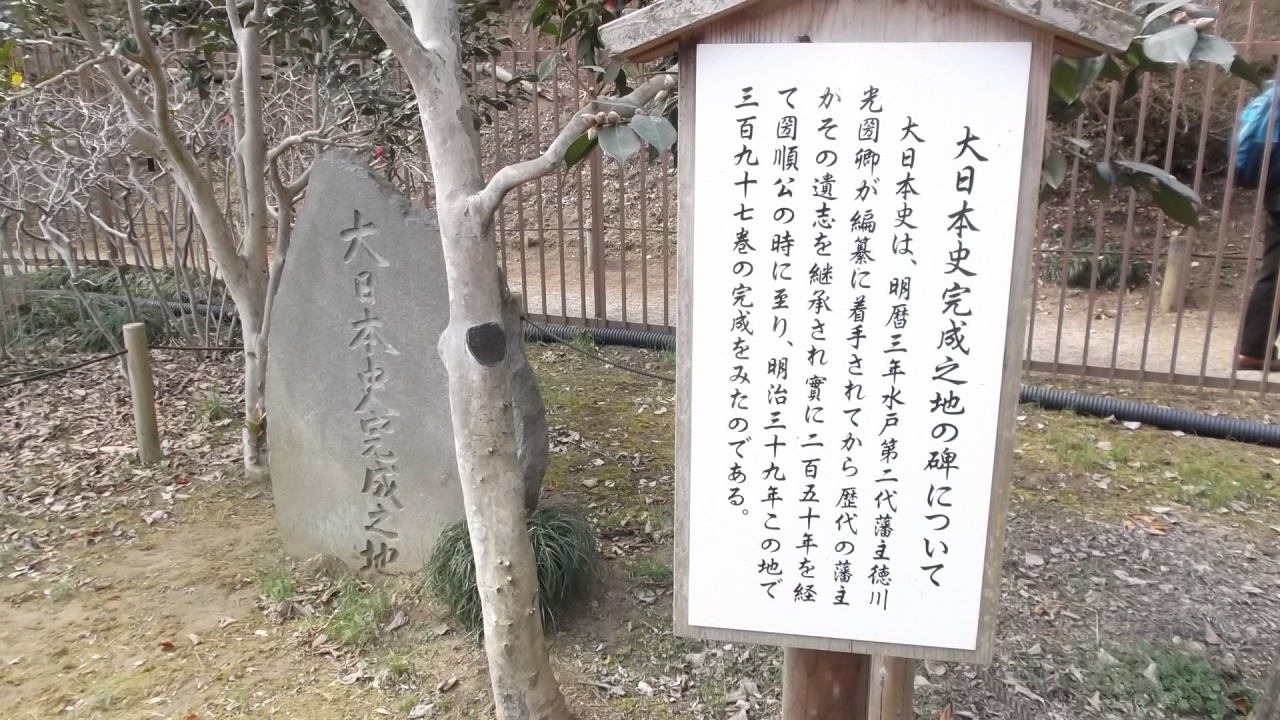 大日本史完成之地の碑について
大日本史は、明暦三年水戸第二代藩主徳川
光圀卿が編纂に着手されてから歴代の藩主
がその遺志を継承され實に二百五十年を経
て圀順公の時に至り、明治三十九年この地で
三百九十七巻の完成をみたのである。
大日本史完成之地